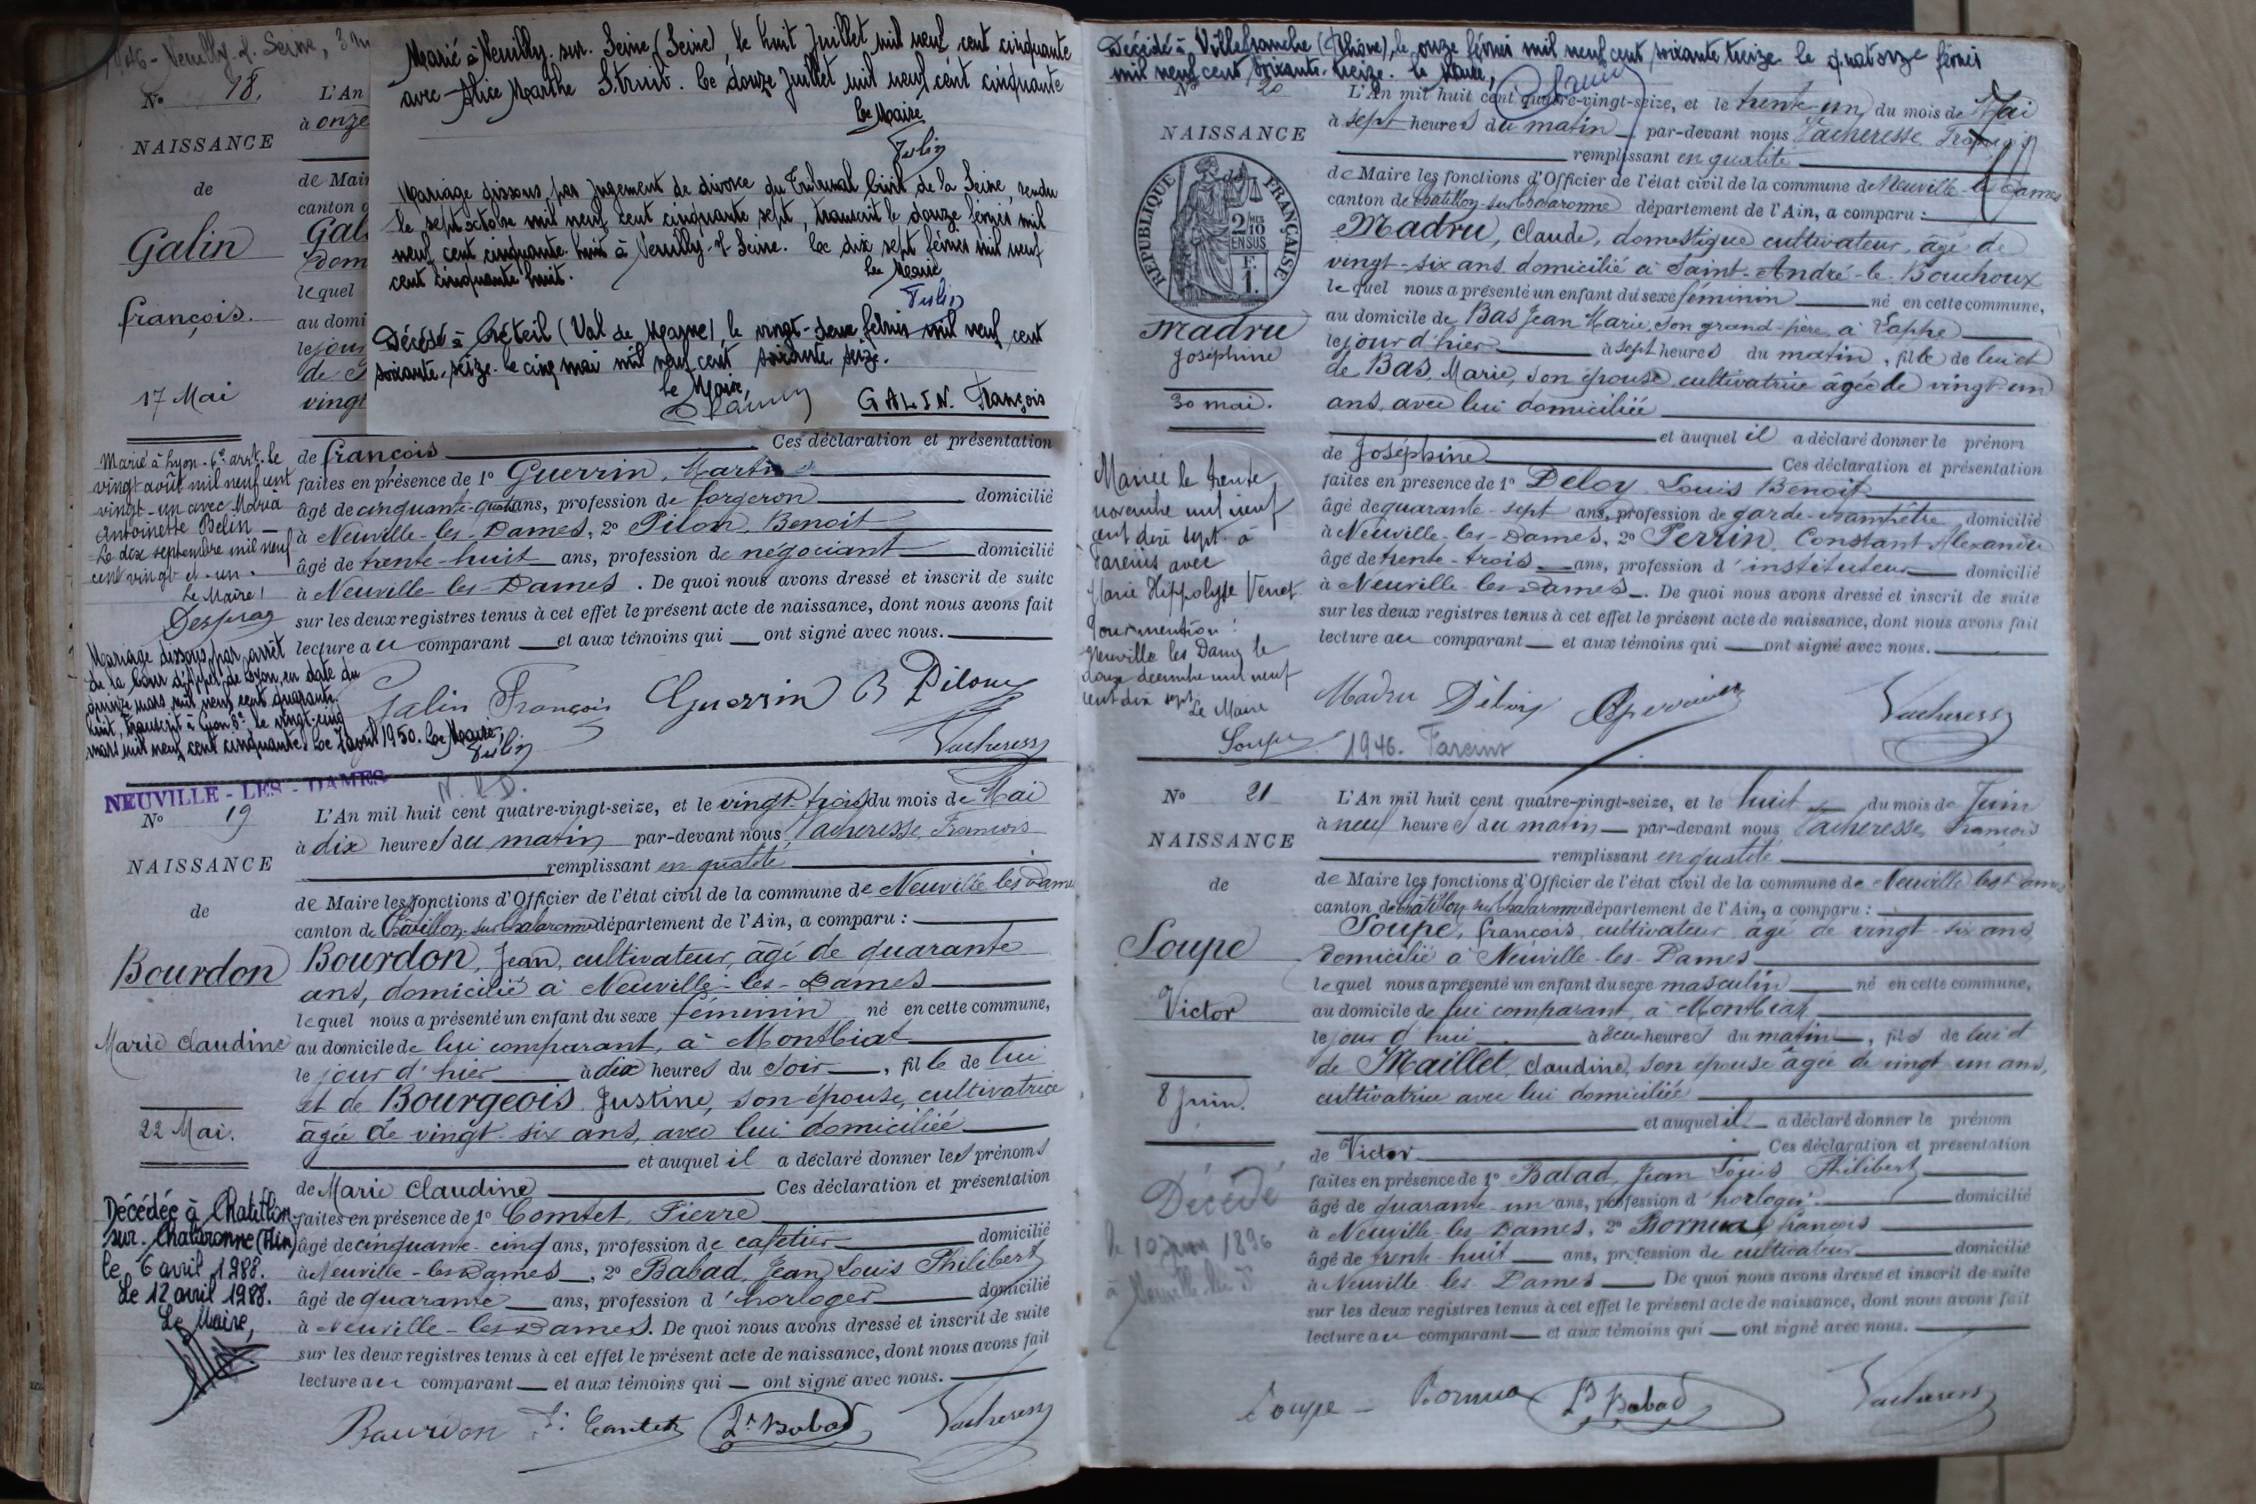 1946 - Neuilly s. Seine, 3 m
Marié à Neuilly. sur. Seine (Seine), le huit Juillet mil neuf cent cinquante
avec Alice Marthe Struib. Le douze Juillet mil neuf cent cinquante
Le Maire
Mariage dissous par jugement de divorce du Tribunal Civil de la Seine, rendu
le sept octobre mil neuf cent cinquante sept, transcrit le douze février mil
neuf cent cinquante huit à Neuilly-s/ Seine. Le dix sept février mil neuf
cent cinquante huit.
Le Maire
Décédé à Créteil (Val de Marne), le vingt-deux février mil neuf cent
soixante-seize. le cinq mai mil neuf cent soixante seize.
Le Maire,
GALIN. François
No 18.
NAISSANCE
de
Galin
françois.
17 Mai
L'An
à onze
de Mair
canton
Gal
dom
le quel
au domi
le jour
de
vingt
Ces déclaration et présentation
de françois
faites en présence de 1o Guerrin, Martin
âgé de cinquante-quatre ans, profession de forgeron domicilié
à Neuville-les-Dames, 2o Pilon, Benoit
âgé de trente-huit ans, profession de négociant domicilié
à Neuville-les-Dames. De quoi nous avons dressé et inscrit de suite
sur les deux registres tenus à cet effet le présent acte de naissance, dont nous avons fait
lecture au comparant et aux témoins qui ont signé avec nous.
Marié à Lyon. 6e arrt. le
vingt août mil neuf cent
vingt-un avec Maria
Antoinette Belin
Le dix septembre mil neuf
cent vingt et un.
Le Maire
Mariage dissous par arrêt
de la Cour d'Appel de Lyon, en date du
quinze mars mil neuf cent quarante
huit, transcrit à Lyon 8e le vingt-cinq
mars mil neuf cent cinquante. Le 7 avril 1950. Le Maire,
Galin François Guerrin B Pilon
Vacheresse
NEUVILLE - LES - DAMES
N. L. D.
No 19
NAISSANCE
de
Bourdon
Marie claudine
22 Mai.
L'An mil huit cent quatre-vingt-seize, et le vingt-trois du mois de Mai
à dix heures du matin par-devant nous Vacheresse, François
remplissant en qualité
de Maire les fonctions d'Officier de l'état civil de la commune de Neuville les Dames
canton de Châtillon-sur-Chalaronne département de l'Ain, a comparu :
Bourdon, Jean, cultivateur, âgé de quarante
ans, domicilié à Neuville-les-Dames
le quel nous a présenté un enfant du sexe féminin né en cette commune,
au domicile de lui comparant, à Montbiat
le jour d'hier à dix heures du soir, fille de lui
et de Bourgeois Justine, son épouse, cultivatrice
âgée de vingt-six ans, avec lui domiciliée
et auquel il a déclaré donner les prénoms
de Marie claudine Ces déclaration et présentation
faites en présence de 1o Comtet, Pierre
âgé de cinquante-cinq ans, profession de cafetier domicilié
à Neuville-les-Dames, 2o Babad, Jean Louis Philibert
âgé de quarante ans, profession d'horloger domicilié
à Neuville-les-Dames. De quoi nous avons dressé et inscrit de suite
sur les deux registres tenus à cet effet le présent acte de naissance, dont nous avons fait
lecture au comparant et aux témoins qui ont signé avec nous.
Décédée à Chatillon
sur. Chalaronne (Ain)
le 6 avril 1988.
Le 12 avril 1988.
Le Maire,
Bourdon P. Comtet Ls Babad Vacheresse
Décédé à Villefranche (Rhône), le onze février mil neuf cent soixante treize le quatorze février
mil neuf cent soixante-treize. le Maire,
No 20
NAISSANCE
REPUBLIQUE FRANÇAISE
2/10 EN SUS
1 F.
Madru
Joséphine
30 mai.
L'An mil huit cent quatre-vingt-seize, et le trente-un du mois de Mai
à sept heures du matin par-devant nous Vacheresse François
remplissant en qualité
de Maire les fonctions d'Officier de l'état civil de la commune de Neuville-les-Dames
canton de Chatillon-sur-Chalaronne département de l'Ain, a comparu :
Madru, claude, domestique cultivateur, âgé de
vingt-six ans domicilié à Saint-André-le-Bouchoux
le quel nous a présenté un enfant du sexe féminin né en cette commune,
au domicile de Bas Jean Marie, son grand-père, à Lappe
le jour d'hier à sept heures du matin, fille de lui et
de Bas, Marie, son épouse cultivatrice âgée de vingt-un
ans, avec lui domiciliée
et auquel il a déclaré donner le prénom
de Joséphine Ces déclaration et présentation
faites en présence de 1o Déloy Louis Benoit
âgé de quarante-sept ans, profession de garde-champêtre domicilié
à Neuville-les-Dames, 2o Perrin, Constant Alexandre
âgé de trente-trois ans, profession d'instituteur domicilié
à Neuville-les-Dames. De quoi nous avons dressé et inscrit de suite
sur les deux registres tenus à cet effet le présent acte de naissance, dont nous avons fait
lecture au comparant et aux témoins qui ont signé avec nous.
Mariée le trente
novembre mil neuf
cent dix sept à
Fareins avec
Marie Hippolyte Verret
Pour mention :
Neuville les Dames le
douze décembre mil neuf
cent dix sept
Le Maire
Soupe
Madru Déloy Perrin Vacheresse
1946. Fareins
No 21
NAISSANCE
de
Soupe
Victor
8 Juin.
L'An mil huit cent quatre-vingt-seize, et le huit du mois de Juin
à neuf heures du matin par-devant nous Vacheresse, François
remplissant en qualité
de Maire les fonctions d'Officier de l'état civil de la commune de Neuville les Dames
canton de Châtillon sur Chalaronne département de l'Ain, a comparu :
Soupe, françois, cultivateur âgé de vingt-six ans
domicilié à Neuville-les-Dames
le quel nous a présenté un enfant du sexe masculin né en cette commune,
au domicile de lui comparant, à Montbiat
le jour d'hui à deux heures du matin, fils de lui et
de Maillet, claudine, son épouse âgée de vingt un ans,
cultivatrice avec lui domiciliée
et auquel il a déclaré donner le prénom
de Victor Ces déclaration et présentation
faites en présence de 1o Babad, Jean Louis Philibert
âgé de quarante-un ans, profession d'horloger domicilié
à Neuville-les-Dames, 2o françois
âgé de trente-huit ans, profession de cultivateur domicilié
à Neuville-les-Dames De quoi nous avons dressé et inscrit de suite
sur les deux registres tenus à cet effet le présent acte de naissance, dont nous avons fait
lecture au comparant et aux témoins qui ont signé avec nous.
Décédé
le 10 Juin 1896
à Neuville les D
Soupe Ls Babad Vacheresse